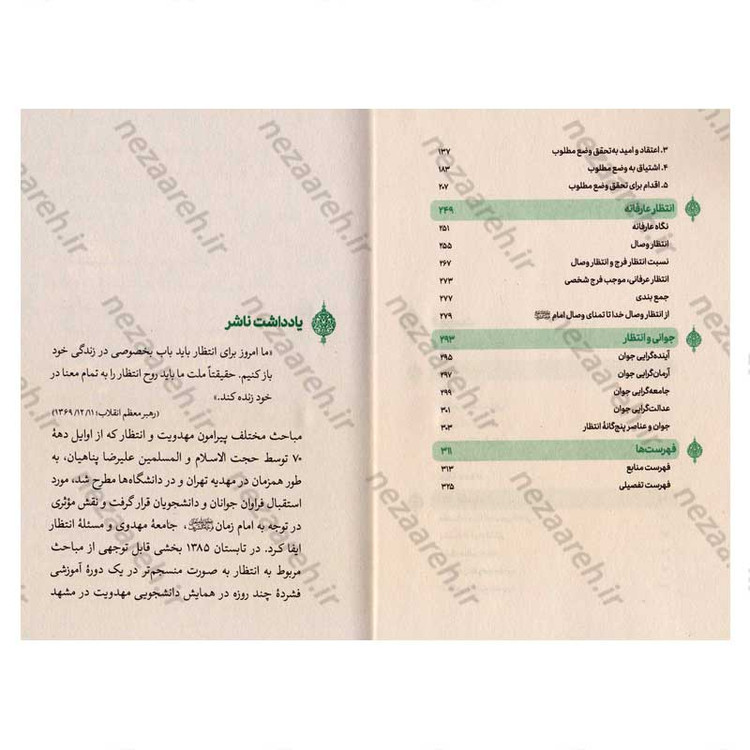 ۳. اعتقاد و امید به تحقق وضع مطلوب ۱۳۷
۴. اشتیاق به وضع مطلوب ۱۸۳
۵. اقدام برای تحقق وضع مطلوب ۲۰۷
انتظار عارفانه ۲۴۹
نگاه عارفانه ۲۵۱
انتظار وصال ۲۵۵
نسبت انتظار فرج و انتظار وصال ۲۶۷
انتظار عرفانی، موجب فرج شخصی ۲۷۳
جمع بندی ۲۷۷
از انتظار وصال خدا تا تمنای وصال امام ۲۷۹
جوانی و انتظار ۲۹۳
آینده‌گرایی جوان ۲۹۵
آرمان‌گرایی جوان ۲۹۷
جامعه‌گرایی جوان ۲۹۹
عدالت‌گرایی جوان ۳۰۱
جوان و عناصر پنج‌گانهٔ انتظار ۳۰۳
فهرست‌ها ۳۱۱
فهرست منابع ۳۱۳
فهرست تفصیلی ۳۲۵
یادداشت ناشر
«ما امروز برای انتظار باید باب بخصوصی در زندگی خود
باز کنیم. حقیقتاً ملت ما باید روح انتظار را به تمام معنا در
خود زنده کند.»
(رهبر معظم انقلاب؛ ۱۳۶۹/۱۲/۱۱)
مباحث مختلف پیرامون مهدویت و انتظار که از اوایل دههٔ
۷۰ توسط حجت الاسلام و المسلمین علیرضا پناهیان، به
طور همزمان در مهدیه تهران و در دانشگاه‌ها مطرح شد، مورد
استقبال فراوان جوانان و دانشجویان قرار گرفت و نقش مؤثری
در توجه به امام زمان، جامعهٔ مهدوی و مسئلهٔ انتظار
ایفا کرد. در تابستان ۱۳۸۵ بخشی قابل توجهی از مباحث
مربوط به انتظار به صورت منسجم‌تر در یک دورهٔ آموزشی
فشردهٔ چند روزه در همایش دانشجویی مهدویت در مشهد
nezaareh.ir
nezaareh.ir
nezaareh.ir
nezaareh.ir
nezaareh.ir
nezaareh.ir
nezaareh.ir
nezaareh.ir
nezaareh.ir